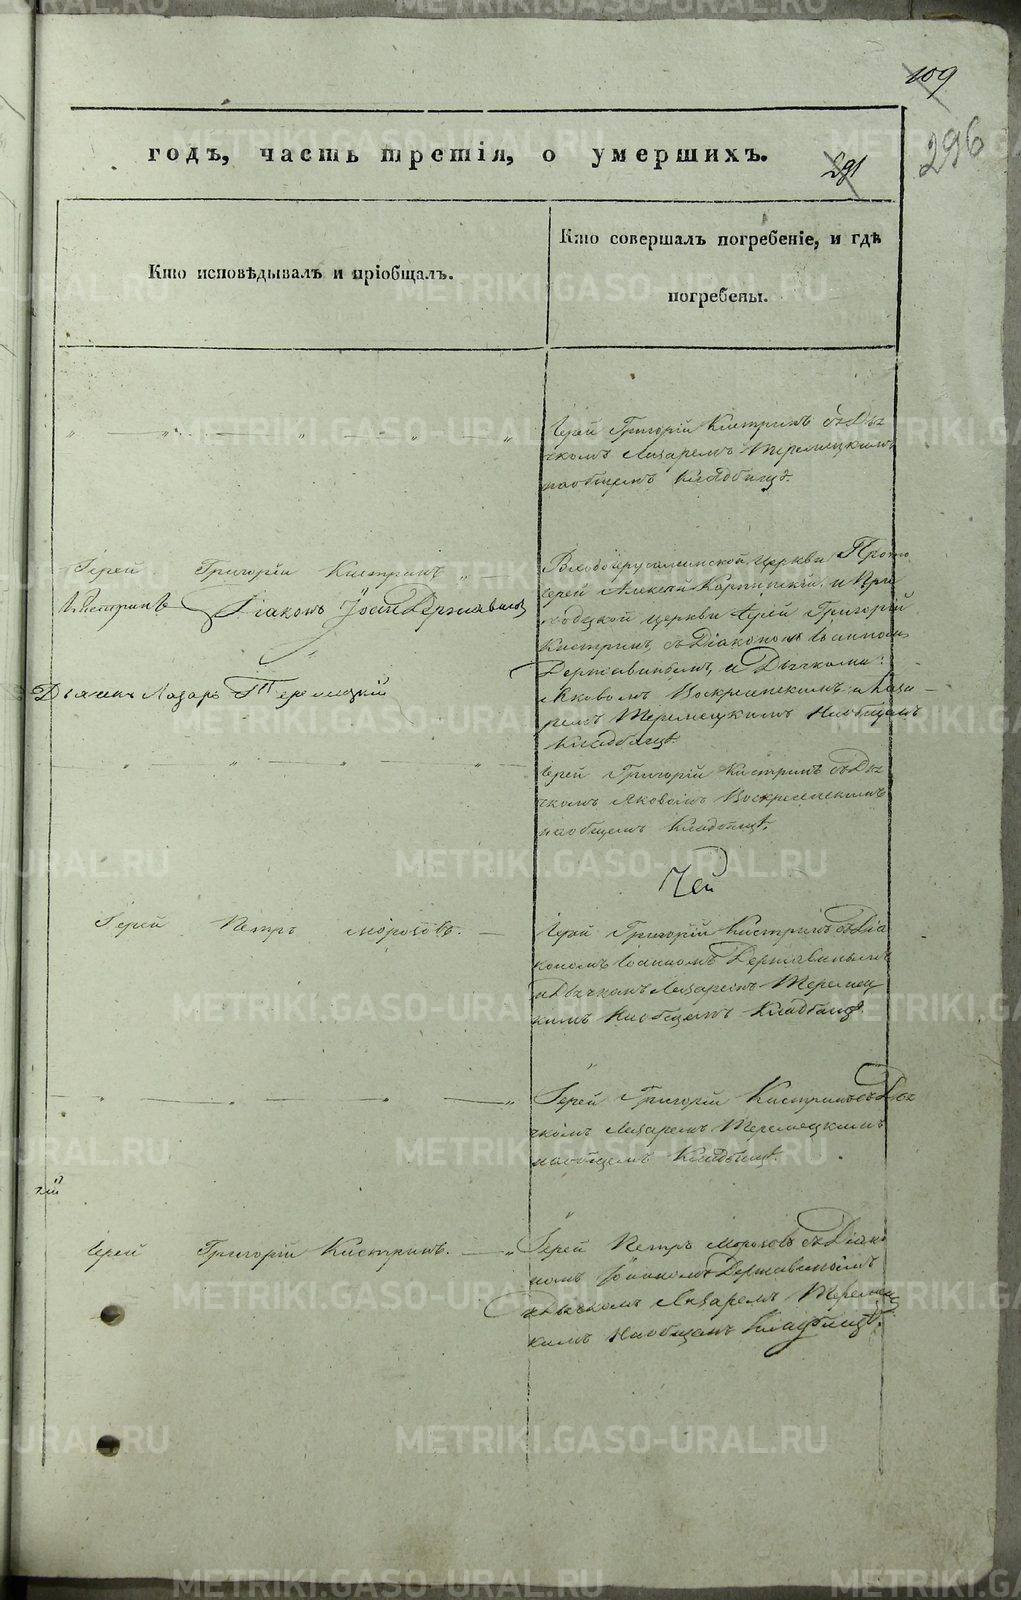 109
296
годъ, часть третія, о умершихъ.
291
Кто исповѣдывалъ и пріобщалъ.
Кто совершалъ погребеніе, и гдѣ
погребены.
Іерей Григорій Кистринъ съ Дья
чкомъ Лазаремъ Теремецкимъ
на общемъ Кладбищѣ.
Іерей Григорій Кистринъ
Кистринъ Діаконъ Іоаннъ Державинъ
Дьячекъ Лазарь Теремецкій
Входоіерусалимской церкви Прото
іерей Алексій Карпинскій, и При
ходской церкви Іерей Григорій
Кистринъ съ Діакономъ Іоанномъ
Державинымъ, и Дьячками:
Яковомъ Воскресенскимъ и Лаза
ремъ Теремецкимъ На общемъ
Кладбищѣ.
Іерей Григорій Кистринъ съ Дья
чкомъ Яковомъ Воскресенскимъ
на общемъ Кладбищѣ.
Іерей Петръ Морозовъ.
Іерей Григорій Кистринъ съ Діа
кономъ Іоанномъ Державинымъ
и Дьячкомъ Лазаремъ Теремец
кимъ На общемъ Кладбищѣ.
Іерей Григорій Кистринъ съ Дья
чкомъ Лазаремъ Теремецкимъ
на общемъ Кладбищѣ.
кій
Іерей Григорій Кистринъ.
Іерей Петръ Морозовъ съ Діако
номъ Іоанномъ Державинымъ
и Дьячкомъ Лазаремъ Теремец
кимъ На общемъ Кладбищѣ.
METRIKI.GASO-URAL.RU